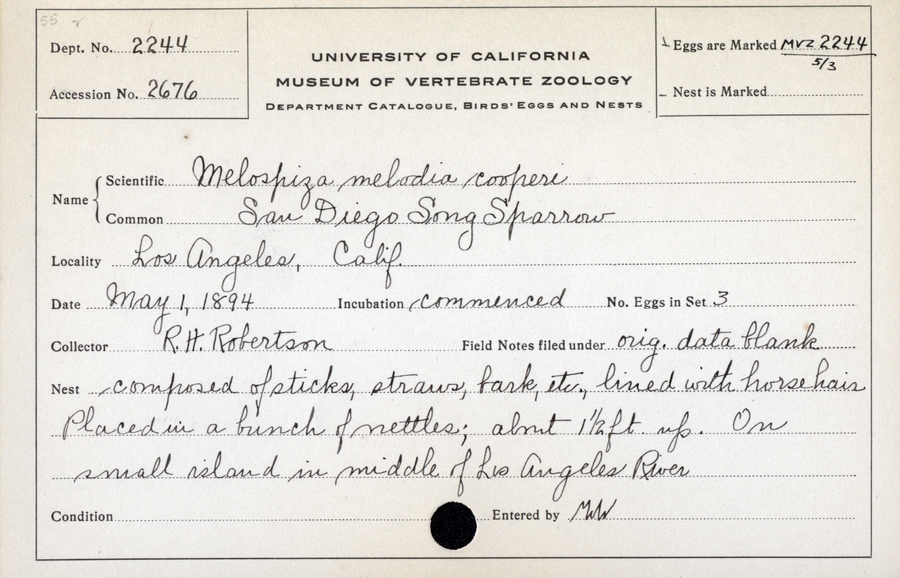 55
Dept. No. 2244
Accession No. 2676
UNIVERSITY OF CALIFORNIA
MUSEUM OF VERTEBRATE ZOOLOGY
DEPARTMENT CATALOGUE, BIRDS' EGGS AND NESTS
Eggs are Marked MVZ 2244
5/3
Nest is Marked
Name
Scientific Melospiza melodia cooperi
Common San Diego Song Sparrow
Locality Los Angeles, Calif.
Date May 1, 1894 Incubation commenced No. Eggs in Set 3
Collector R.H. Robertson Field Notes filed under orig. data blank
Nest composed of sticks, straws, bark, etc., lined with horsehair
Placed in a bunch of nettles; about 1½ ft up. On
small island in middle of Los Angeles River
Condition Entered by